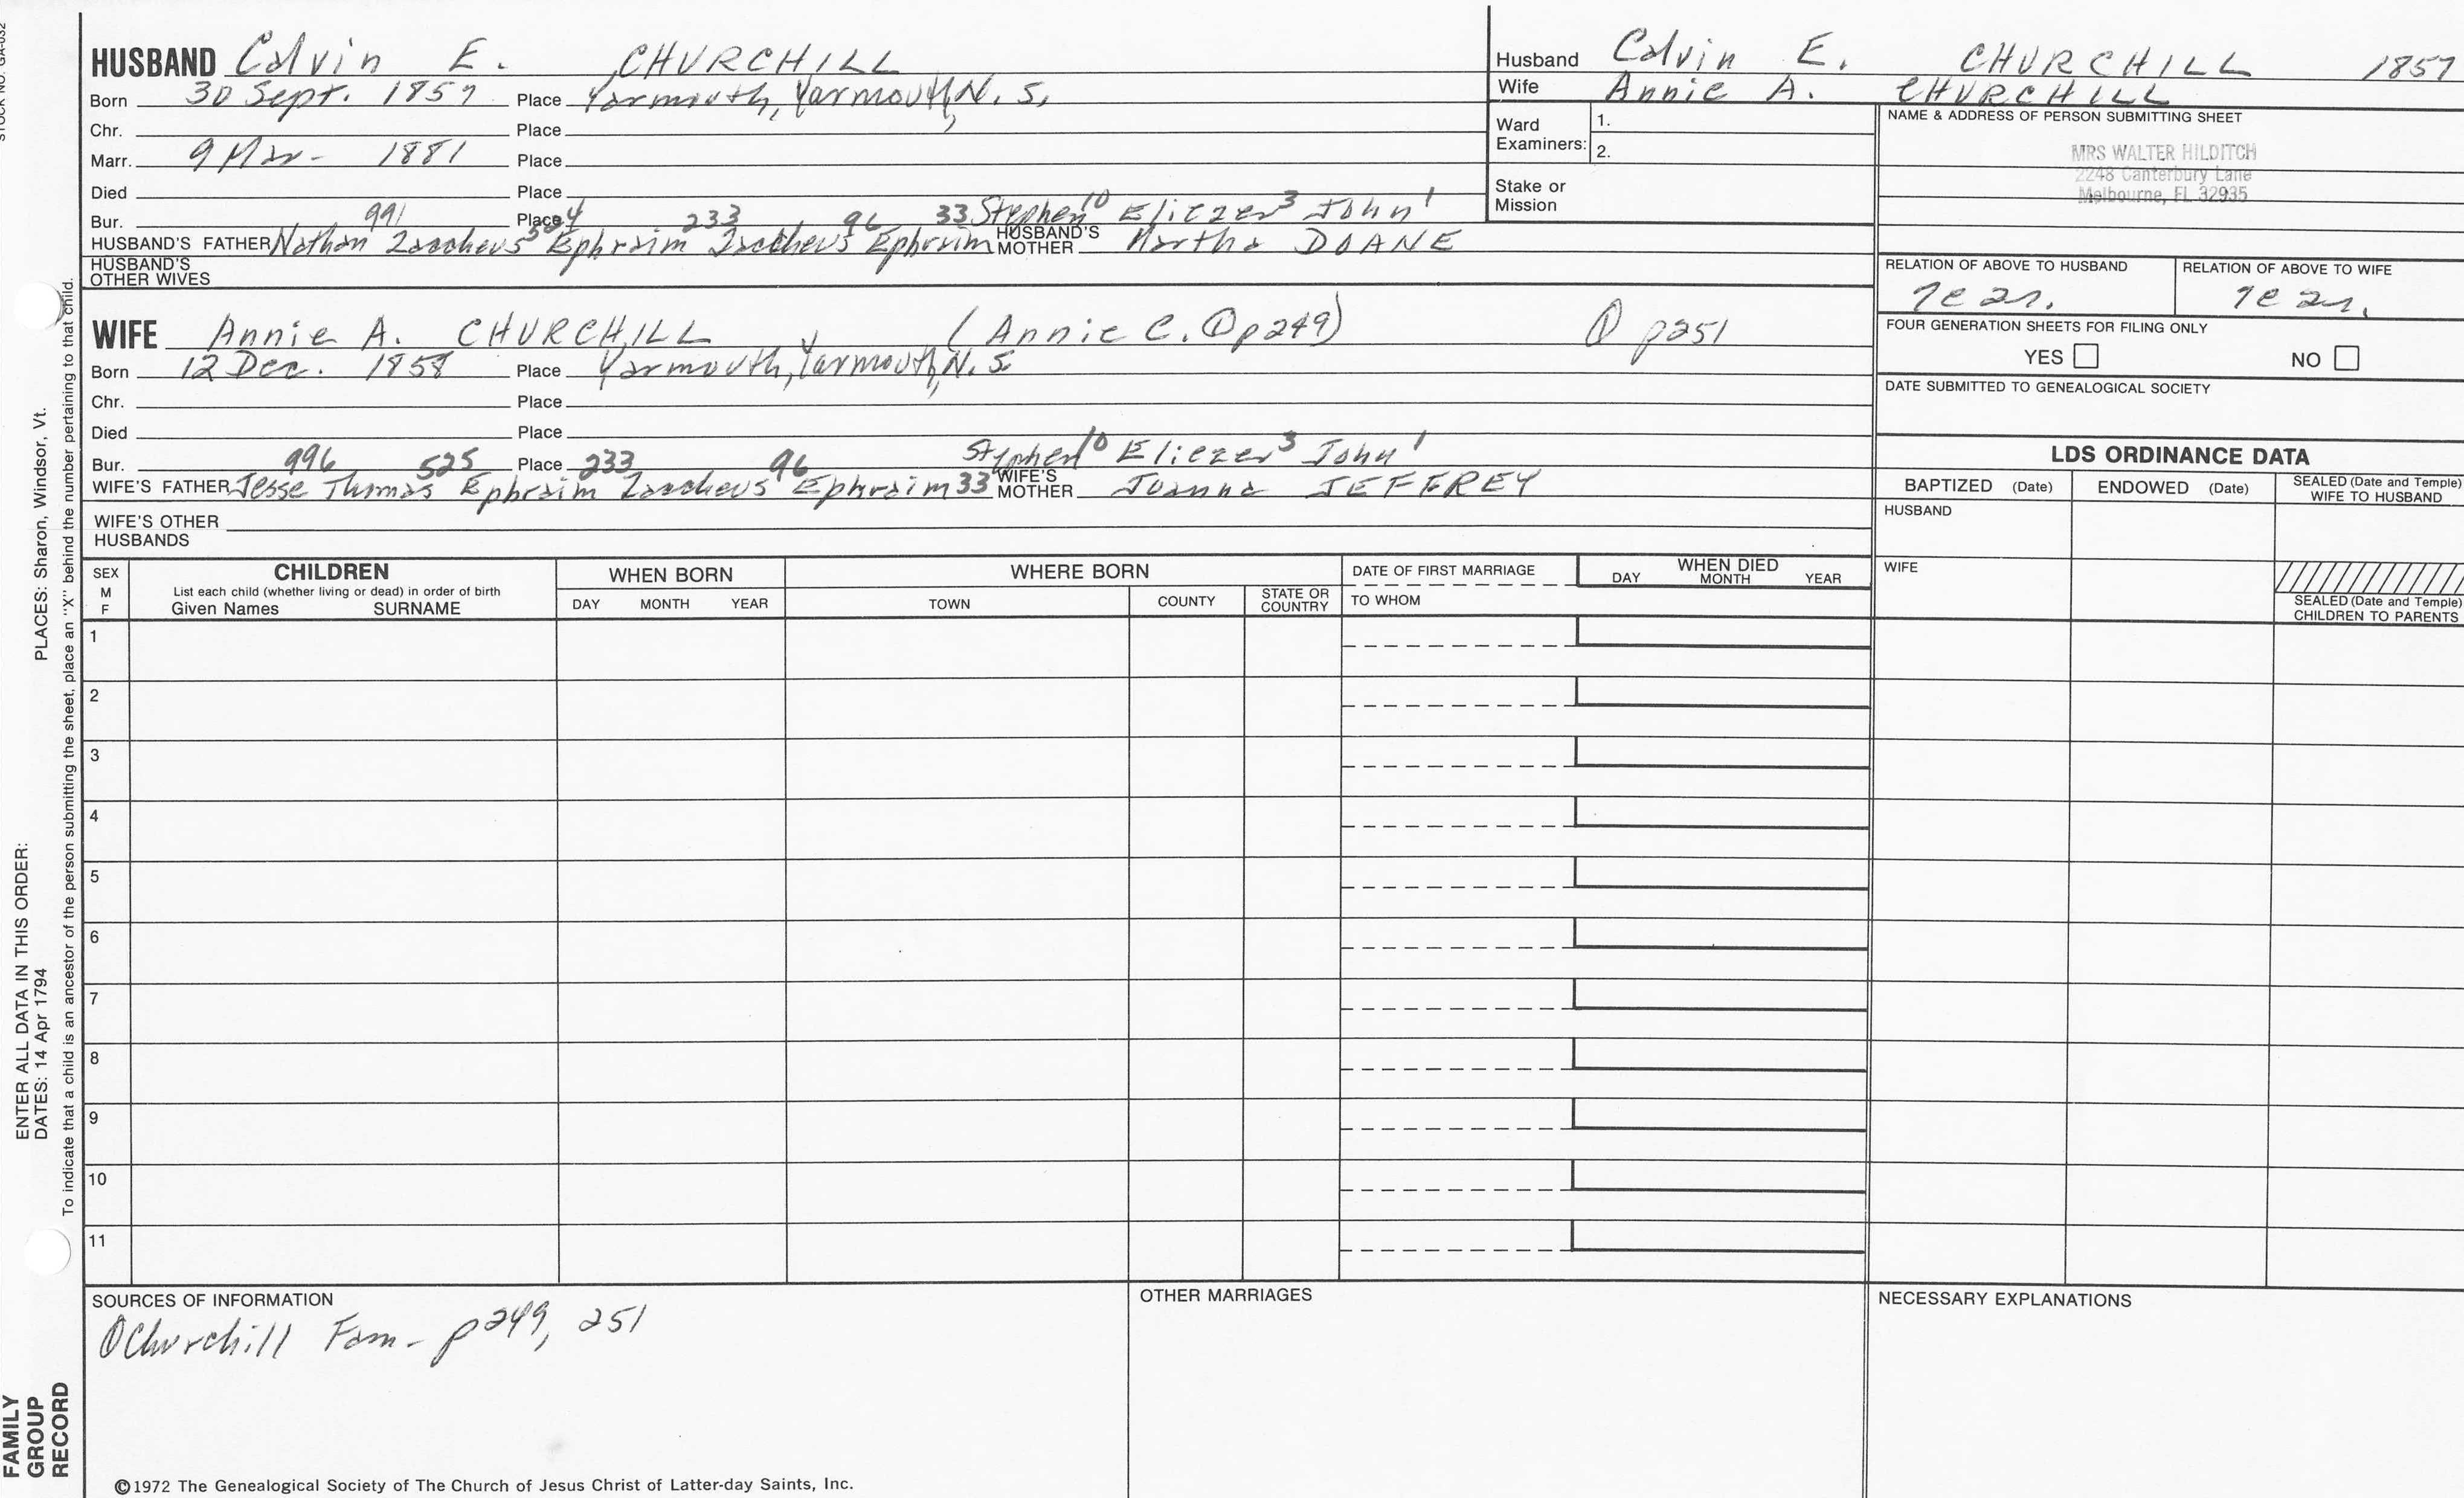 HUSBAND Calvin E. CHURCHILL
Born 30 Sept. 1857 Place Yarmouth, Yarmouth, N. S.
Chr. Place
Marr. 9 Mar- 1881 Place
Died Place
Bur. 991 Place 233 96 33 Stephen 10 Eliezer 3 John 1
HUSBAND'S FATHER Nathan Zaccheus Ephraim Zaccheus Ephraim HUSBAND'S MOTHER Martha DOANE
HUSBAND'S OTHER WIVES
Husband Calvin E. CHURCHILL 1857
Wife Annie A. CHURCHILL
Ward Examiners: 1.
2.
Stake or Mission
NAME & ADDRESS OF PERSON SUBMITTING SHEET
MRS WALTER HILDITCH
2248 Canterbury Lane
Melbourne, FL 32935
RELATION OF ABOVE TO HUSBAND RELATION OF ABOVE TO WIFE
FOUR GENERATION SHEETS FOR FILING ONLY
YES NO
DATE SUBMITTED TO GENEALOGICAL SOCIETY
WIFE Annie A. CHURCHILL (Annie C. ① p249) ① p251
Born 12 Dec. 1858 Place Yarmouth, Yarmouth, N. S.
Chr. Place
Died Place
Bur. 996 525 Place 233 96 Stephen 10 Eliezer 3 John 1
WIFE'S FATHER Jesse Thomas Ephraim Zaccheus Ephraim 33 WIFE'S MOTHER Joanna JEFFREY
WIFE'S OTHER HUSBANDS
LDS ORDINANCE DATA
BAPTIZED (Date) ENDOWED (Date) SEALED (Date and Temple) WIFE TO HUSBAND
HUSBAND
WIFE
SEALED (Date and Temple) CHILDREN TO PARENTS
SEX M F
CHILDREN
List each child (whether living or dead) in order of birth
Given Names SURNAME
WHEN BORN
DAY MONTH YEAR
WHERE BORN
TOWN COUNTY STATE OR COUNTRY
DATE OF FIRST MARRIAGE
TO WHOM
WHEN DIED
DAY MONTH YEAR
1
2
3
4
5
6
7
8
9
10
11
SOURCES OF INFORMATION
① Churchill Fam- p249, 251
OTHER MARRIAGES
NECESSARY EXPLANATIONS
©1972 The Genealogical Society of The Church of Jesus Christ of Latter-day Saints, Inc.
STOCK NO. GA-032
PLACES: Sharon, Windsor, Vt.
ENTER ALL DATA IN THIS ORDER:
DATES: 14 Apr 1794
To indicate that a child is an ancestor of the person submitting the sheet, place an "X" behind the number pertaining to that child.
FAMILY
GROUP
RECORD